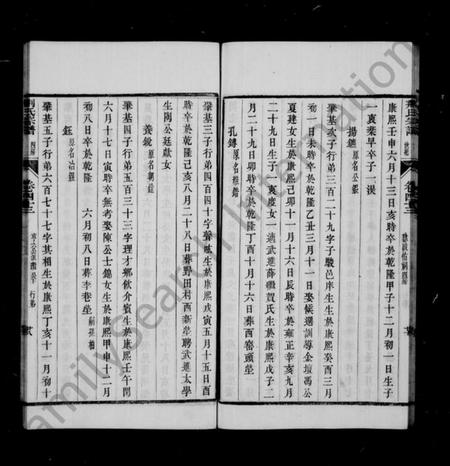 康熙壬申六月十三日亥時卒於乾隆甲子十二月初一日生子
一衷業早卒子一淏
揚鑣 原名公鑣
肇基次子行弟三百二十九字子駿邑庠生生於康熙癸酉三月
初一日未時卒於乾隆乙丑三月十一日娶候選訓導金壇馮公
夏建女生於康熙己卯十一月十六日辰時卒於雍正辛亥九月
二十九日生子一衷度女一適武進薛繼賀氏生於康熙戊子二
月二十九日卯時卒於乾隆丁酉十月十六日葬西窰頭塋
孔鑄
肇基三子行弟四百四十字聲
生於康熙戊寅五月十五日酉
時卒於乾隆己亥八月二十八日葬野田村西新塋聘武進太學
生陶公廷獻女
肇基四子行弟五百三十三字理才鄉飲介賓生於康熙壬午閏
六月十七日寅時卒無考娶陳公士錦女生於康熙甲申十二月
初八日卒於乾隆 六月初八日葬李巷塋
鈺 原名治鑑
肇基五子行弟六百七十七字其相生於康熙丁亥十一月初十